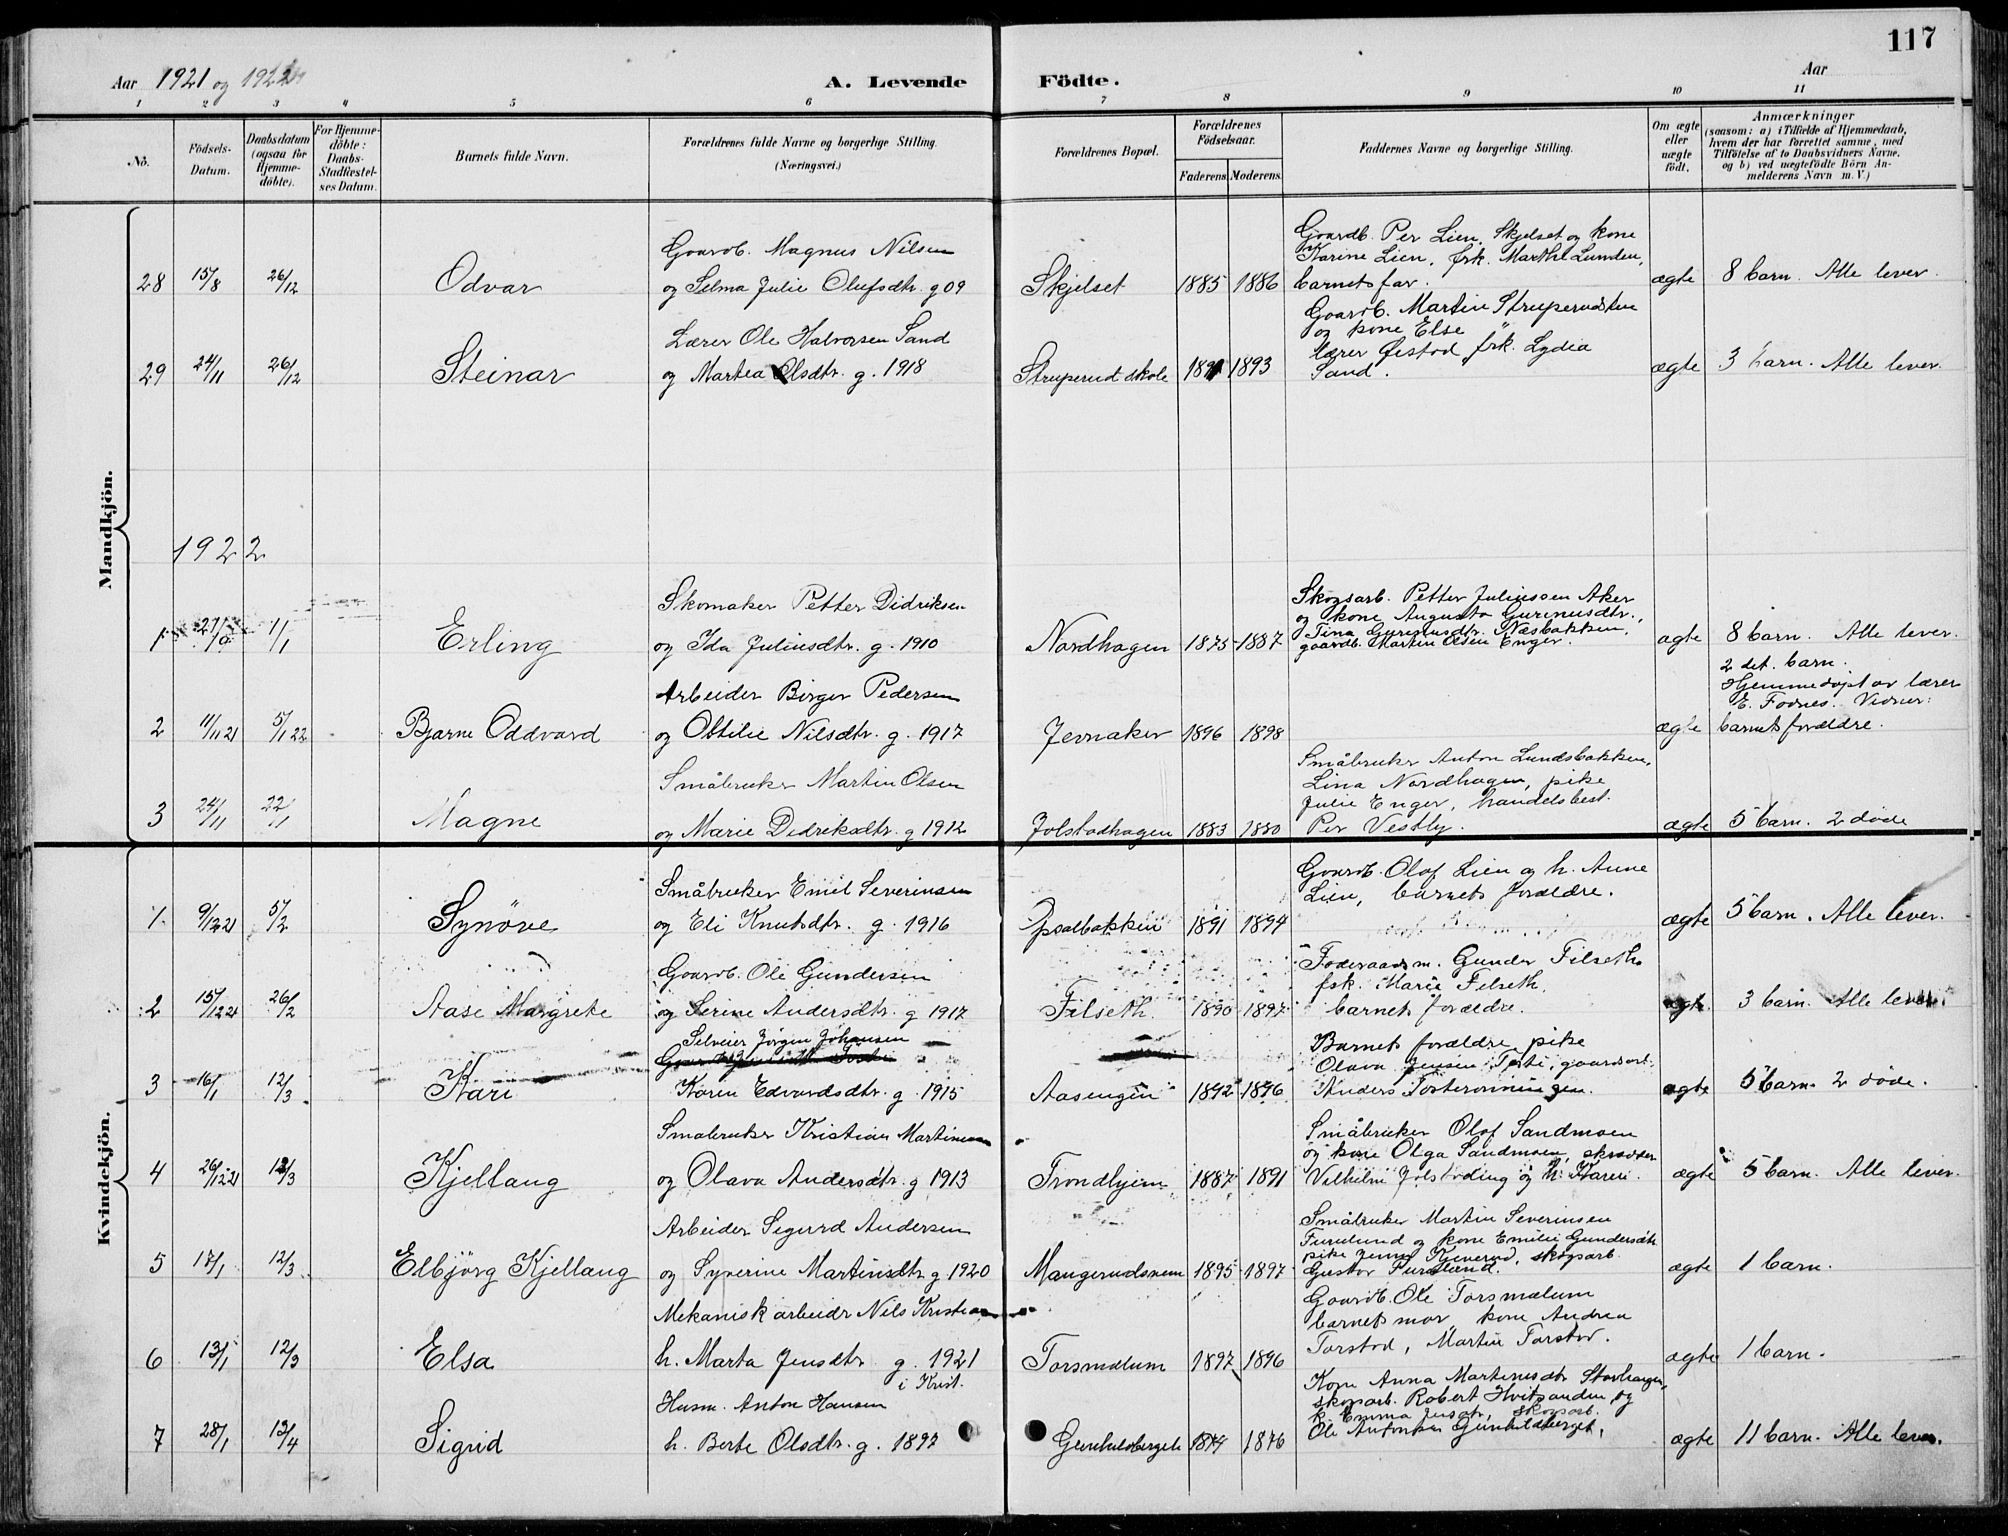 117
Aar 1921 og 1922
A. Levende Födte.
Aar
1 2 3 4 5 6 7 8 9 10 11
No.
Födsels-Datum.
Daabsdatum (ogsaa for Hjemme-döbte).
For Hjemme-döbte: Daabs-Stadfæstel-ses Datum.
Barnets fulde Navn.
Forældrenes fulde Navne og borgerlige Stilling.
(Næringsvei.)
Forældrenes Bopæl.
Forældrenes Födselsaar.
Faderens. Moderens.
Faddernes Navne og borgerlige Stilling.
Om ægte eller uægte født.
Anmærkninger
(saasom: a) i Tilfælde af Hjemmedaab,
hvem der har forrettet samme, med
Tilföielse af to Daabsvidners Navne,
og b) ved uægtefödte Börn An-
melderens Navn m. V.)
Mandkjön.
28 15/8 26/12 Odvar
Gaardb. Magnus Nilsen
og Selma Julie Olufsdtr. g 09
Skjelset 1885 1886
Gaardb. Per Lien, Skjelset og kone
Karine Lien, frk. Marthe Lunden,
barnets far.
ægte 8 barn. Alle lever.
29 24/11 26/12 Steinar
Lærer Ole Halvorsen Sand
og Martea Olsdtr. g. 1918
Struperud skole 1891 1893
Gaardb. Martin Struperudsten
og kone Else
lærer Øistad, frk. Lydia
Sand.
ægte 3 barn. Alle lever.
1922
1 1/1 Erling
Skomaker Petter Didriksen
og Ida Juliusdtr. g. 1910
Nordhagen 1875 1887
Skogsarb. Petter Juliussen Aker
og kone Augusta Gurinusdtr.,
Tina Gurinusdtr. Næsbakken,
gaardb. Martin Olsen Enger.
ægte 8 barn. Alle lever.
2 11/11 21 5/1 22 Bjarne Oddvard
Arbeider Birger Pedersen
og Ottilie Nilsdtr. g. 1917
Jernaker 1896 1898
ægte
2 det. barn.
Hjemmedøpt av lærer
E. Fodnes. Vidner:
barnets forældre.
3 24/11 22/1 Magne
Småbruker Martin Olsen
og Marie Didriksdtr. g 1912
Jolstadhagen 1883 1880
Småbruker Anton Lundsbakken,
Lina Nordhagen, pike
Julie Enger, handelsbest.
Per Vestby.
ægte 5 barn. 2 døde
Kvindekjön.
1. 9/12 21 5/2 Synöve
Småbruker Emil Severinsen
og Eli Knutsdtr. g. 1916
Opsalbakken 1891 1894
Gaardb. Olaf Lien og h. Anne
Lien, barnets forældre.
ægte 5 barn. Alle lever.
2 15/12 21 26/2 Aase Margrete
Gaardb. Ole Gundersen
og Serine Andersdtr. g 1917
Filseth. 1890 1897
Føderaadsm. Gunder Filseth
frk. Marie Filseth,
barnets forældre.
ægte. 3 barn. Alle lever.
3 16/1 12/3 Kari
Selveier Jörgen Johansen
Karen Edvardsdtr. g. 1915
Aasengen 1892 1896
Barnets forældre, pike
Olava Jensen Toste, gaardsarb.
Anders
ægte 5 barn. 2 døde.
4 26/12 21 12/3 Kjellaug
Småbruker Kristian Martinsen
og Olava Andersdtr. g 1913
Trondhjem 1887 1891
Småbruker Olaf Sandmoen
og kone Olga Sandmoen, skrædder
Vilhelm Jolstading og h. Karen.
ægte 5 barn. Alle lever.
5 17/1 12/3 Elbjörg Kjellaug
Arbeider Sigurd Andersen
og Syverine Martinsdtr g 1920
Mangerudsnem 1895 1897
Småbruker Martin Severinsen
Furulund og kone Emilie Gundersdtr.
pike Jenny Kjenerud, skogsarb.
Gustav Furulund.
ægte 1 barn.
6 13/1 12/3 Elsa
Mekanisk arbeidr Nils Kristian
h. Marta Jensdtr g. 1921
i Krist.
Torsmælum 1897 1896
Gaardb. Ole Torsmælum
barnets mor, kone Andrea
Torstad, Martin Torstad.
ægte 1 barn.
7 28/1 13/4 Sigrid
Husm. Anton Hansen
h. Berte Olsdtr. g. 1897
Gunhildberget 1874 1876
Kone Anna Martinusdtr Stavhaugen,
skogsarb. Robert Hvitsanden og
k. Emma Jensdtr, skogsarb.
Ole Antonsen Gunhildberget.
ægte 11 barn. Alle lever.